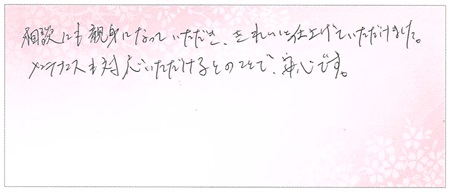 相談にも親身になっていただき、きれいに仕上げていただけました。
メンテナンスも対応いただけるとのことで、安心です。